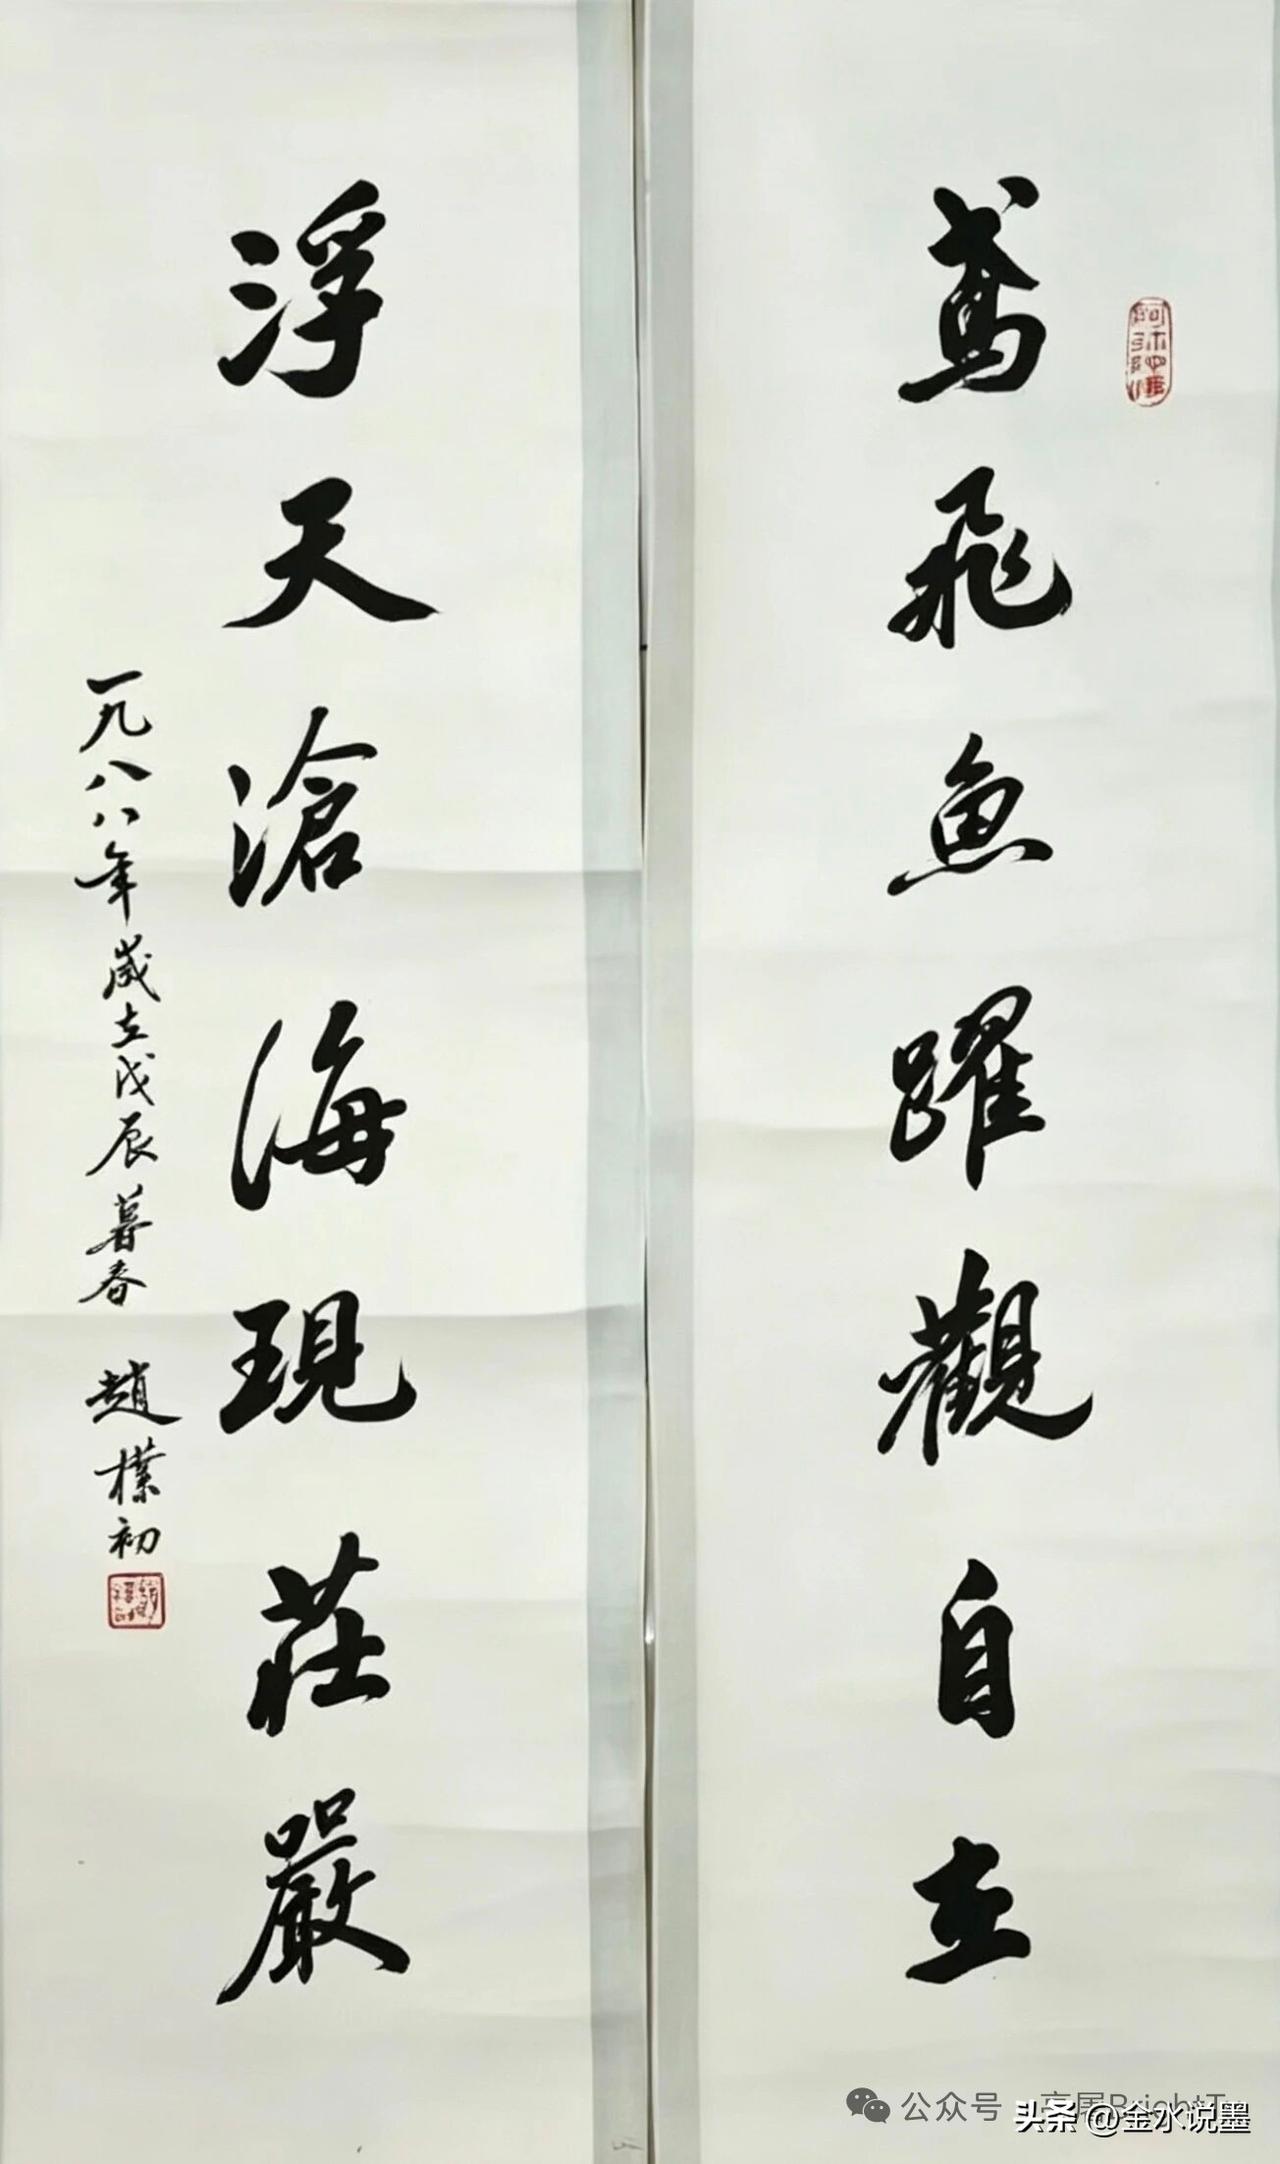 鳶飛魚躍觀自在
浮天滄海現莊嚴
一九八八年歲在戊辰暮春 趙樸初
公众号
头条 @金水说墨